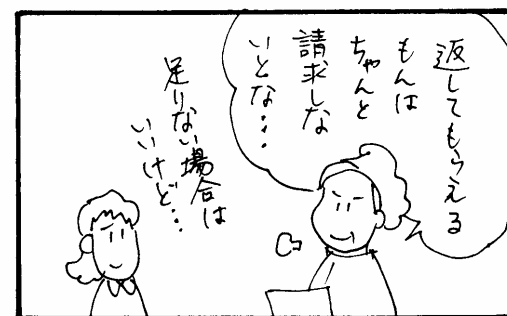 返してもらえる
もんは
ちゃんと
請求しな
いとな・・・
足りない場合は
いいけど・・・